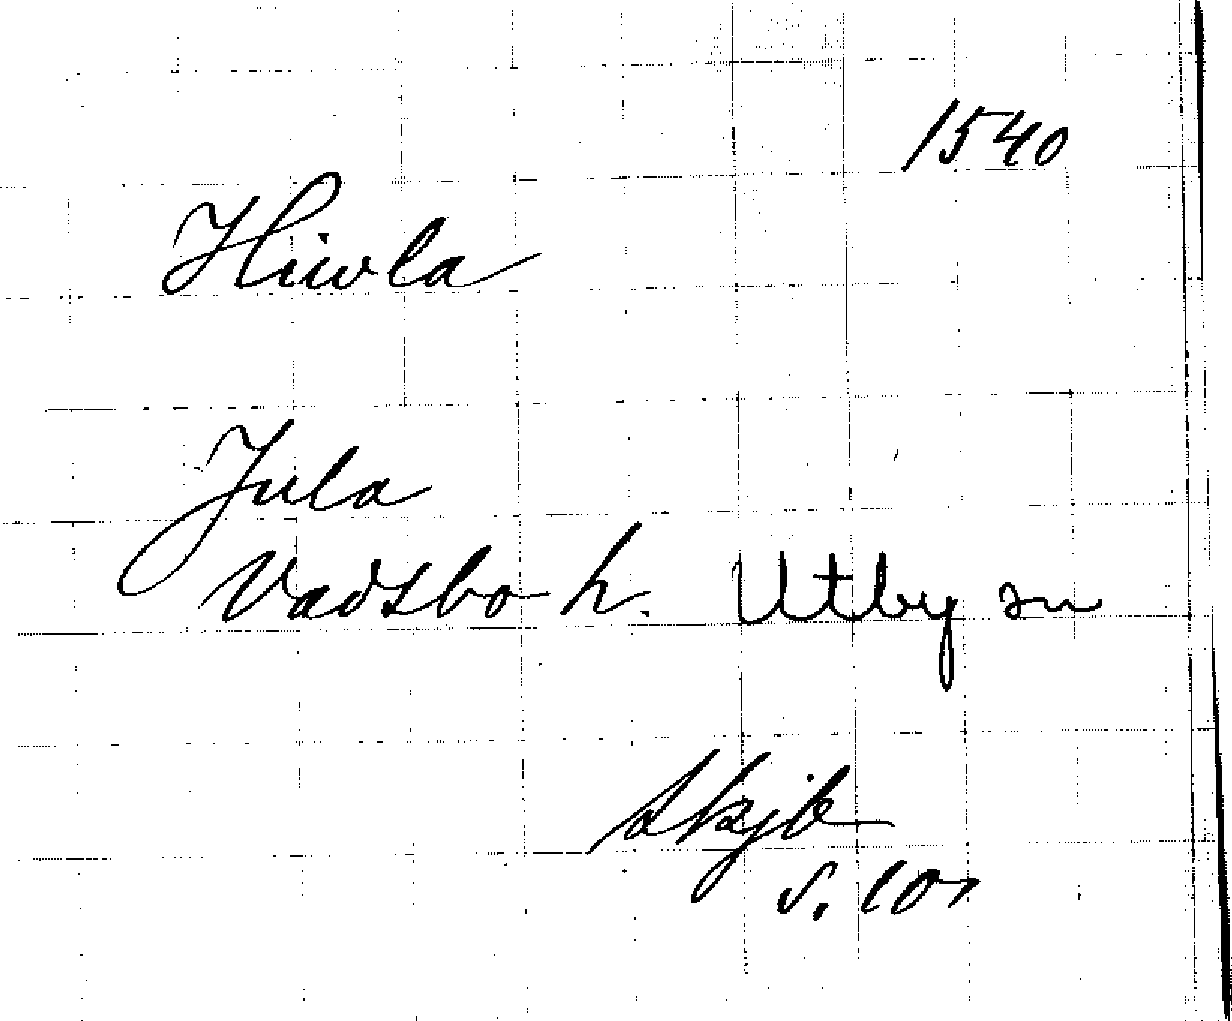 1540
Hiwla
Jula
Vadsbo h. Utby sn
Skjb
s. 107